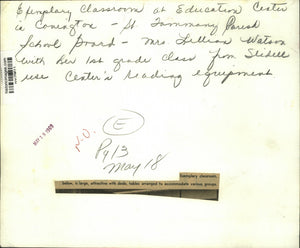 Exemplary Classroom at Education Center
in Covington - St. Tammany Parish
School Board - Mrs. Lillian Watson
with her 1st grade class from Slidell
use Center's reading equipment
N.O.
E
Pg 13
May 18
Exemplary classroom,
below, is large, attractive with desk, tables arranged to accommodate various groups.